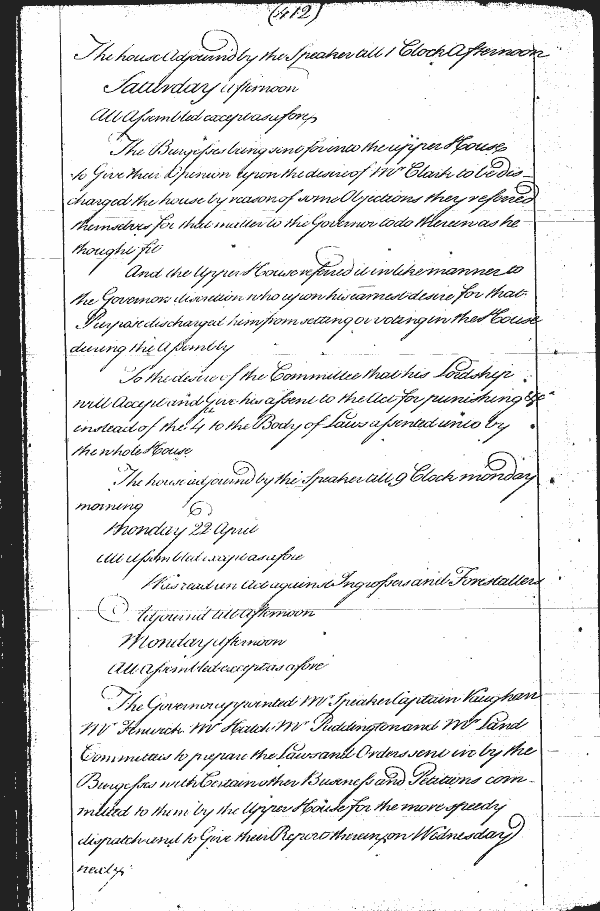 (412)
The house Adjourned by the Speaker till 1 Clock Afternoon
Saturday afternoon
All Assembled except as afore
The Burgesses being sent for into the upper House
to Give their Opinion upon the desire of Mr Clark to be dis-
charged the house by reason of some Objections they referred
themselves for that matter to the Governor to do therein as he
thought fit
And the Upper House referred it in like manner to
the Governors discretion who upon his earnest desire for that
Purpose discharged him from setting or voting in the House
during the Assembly
To the desire of the Committee that his Lordship
will Accept and Give his assent to the Act for punishing &ca
instead of the 4th to the Body of Laws assented unto by
the whole House
The house adjourned by the Speaker till 9 Clock monday
morning
Monday 22 April
All Assembled except as afore
Was read an Act against Ingrossers and Forestallers
Adjourned till afternoon
Monday afternoon
All Assembled except as afore
The Governor appointed Mr Speaker Captain Vaughan
Mr Fenwick Mr Hatch Mr Puddington and Mr Land
Committees to prepare the Laws and Orders sent in by the
Burgesses with Certain other Business and Petitions com-
mitted to them by the Upper House for the more speedy
dispatch and to Give their Report therein on Wednesday
next